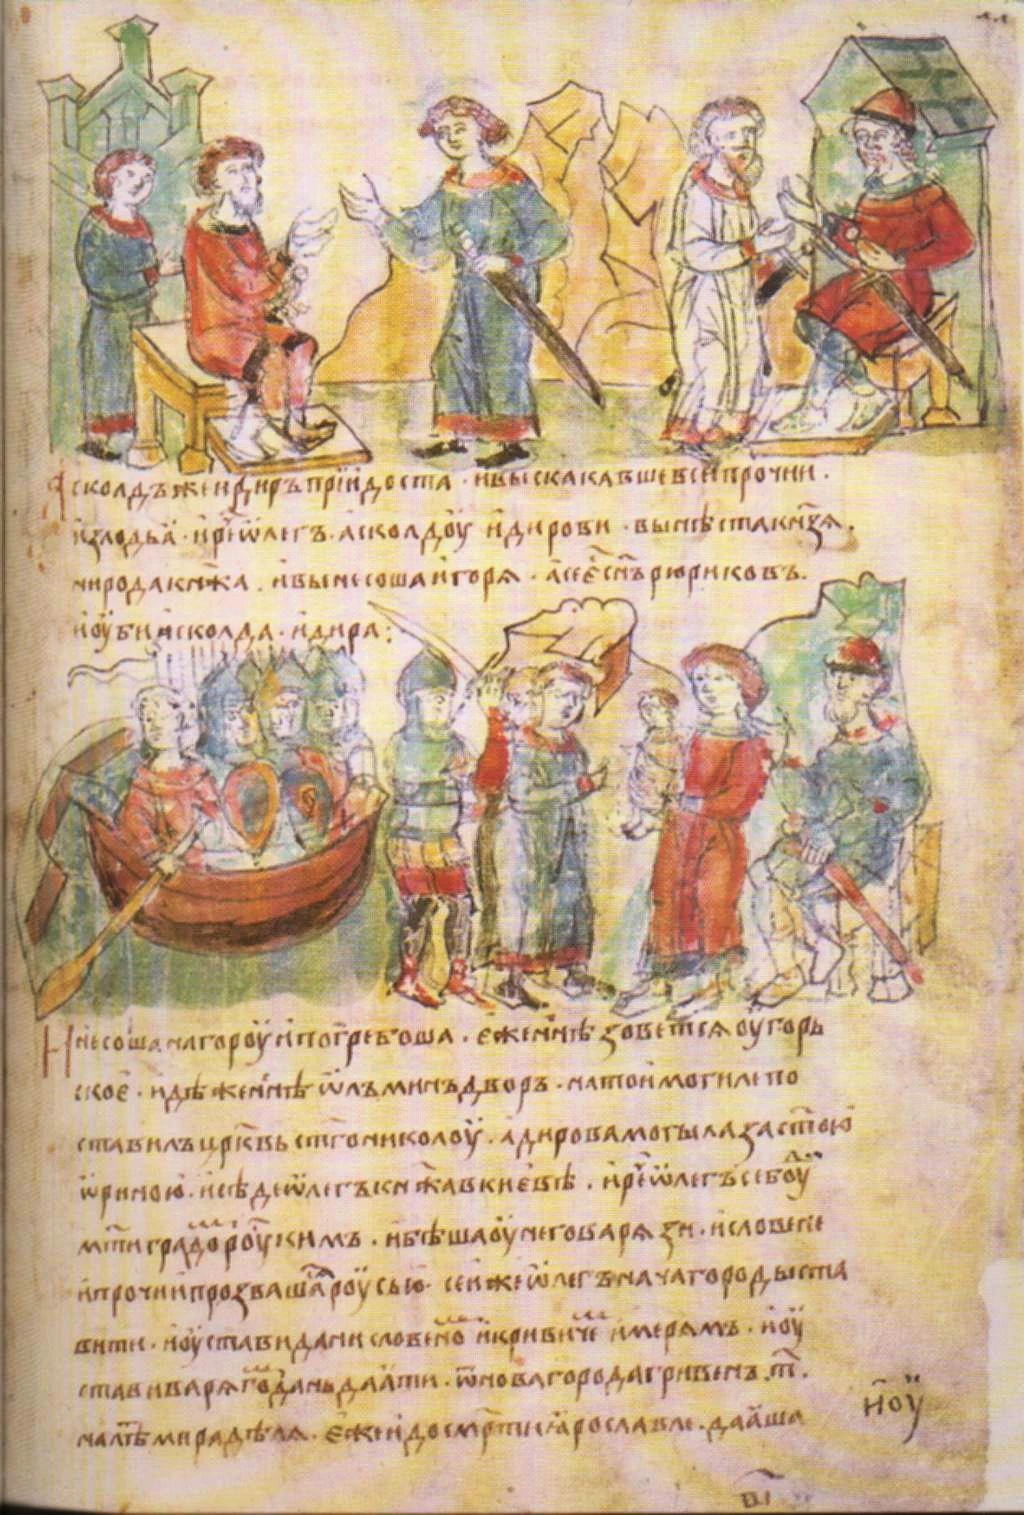 Асколдъ же и Диръ прїидоста · и выскакавше вси прочии ·
излодьӕ · и рч҃е ѡлегъ · асколдоу и дирови · вы нѣста кн҃зѧ ·
ни рода кнѧжа · и вынесоша игорѧ · а се є҆ сн҃ъ рюриковъ ·
и оубиша асколда · и дира :
И несоша на гороу и погребоша · єже нн҃ѣ зоветсѧ оугорь
скоє · идѣже нн҃ѣ ѡлъминъ дворъ · на тои могиле по
ставилъ црк҃вь ст҃го николоу · а дирова могыла за ст҃ою
ѡриною · и сѣде ѡлегъ кнѧжа в києвѣ · и рч҃е ѡлегъ се боуⷣ
мт҃и градомъ роускимъ · и бѣша оу неговарѧзи · и словене
и прочии прозвашасѧ роусью · сеи же ѡлегъ нача городы ста
вити · и оустави дани словеномъ и кривичемъ и мерѧмъ · и оу
стави варѧгомъ дань даӕти · ѿ новагорода гривенъ · т҃ ·
на лѣ҃т мира дѣлѧ · єже и до смр҃ти ӕрославле · даӕша
и оу